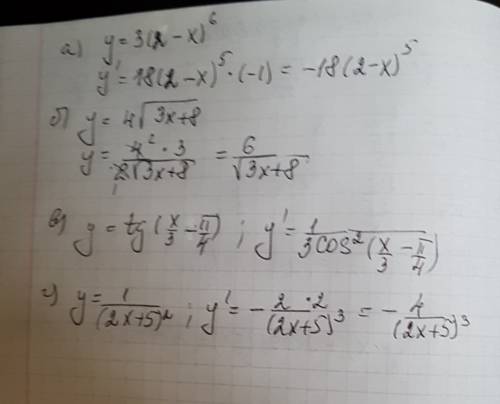 а) y=3(2-x)^6
y'=18(2-x)^5·(-1)=-18(2-x)^5
б) y=4√(3x+8)
y=4^2·3/(2_1√(3x+8))=6/√(3x+8)
в) y=tg(x/3-π/4); y'=1/(3cos^2(x/3-π/4))
г) y=1/(2x+5)^2; y'=-2·2/(2x+5)^3=-4/(2x+5)^3